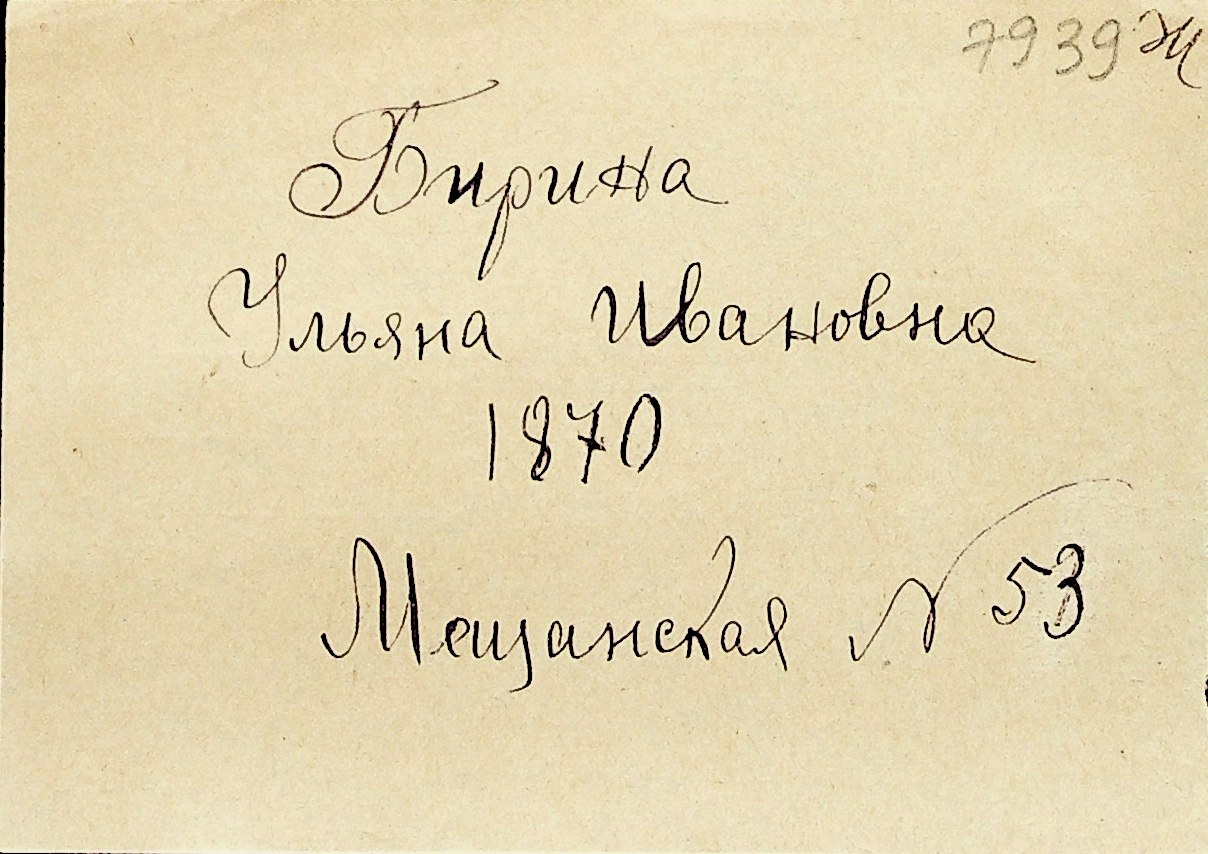 7939 Ж
Бирина
Ульяна Ивановна
1870
Мещанская N 53